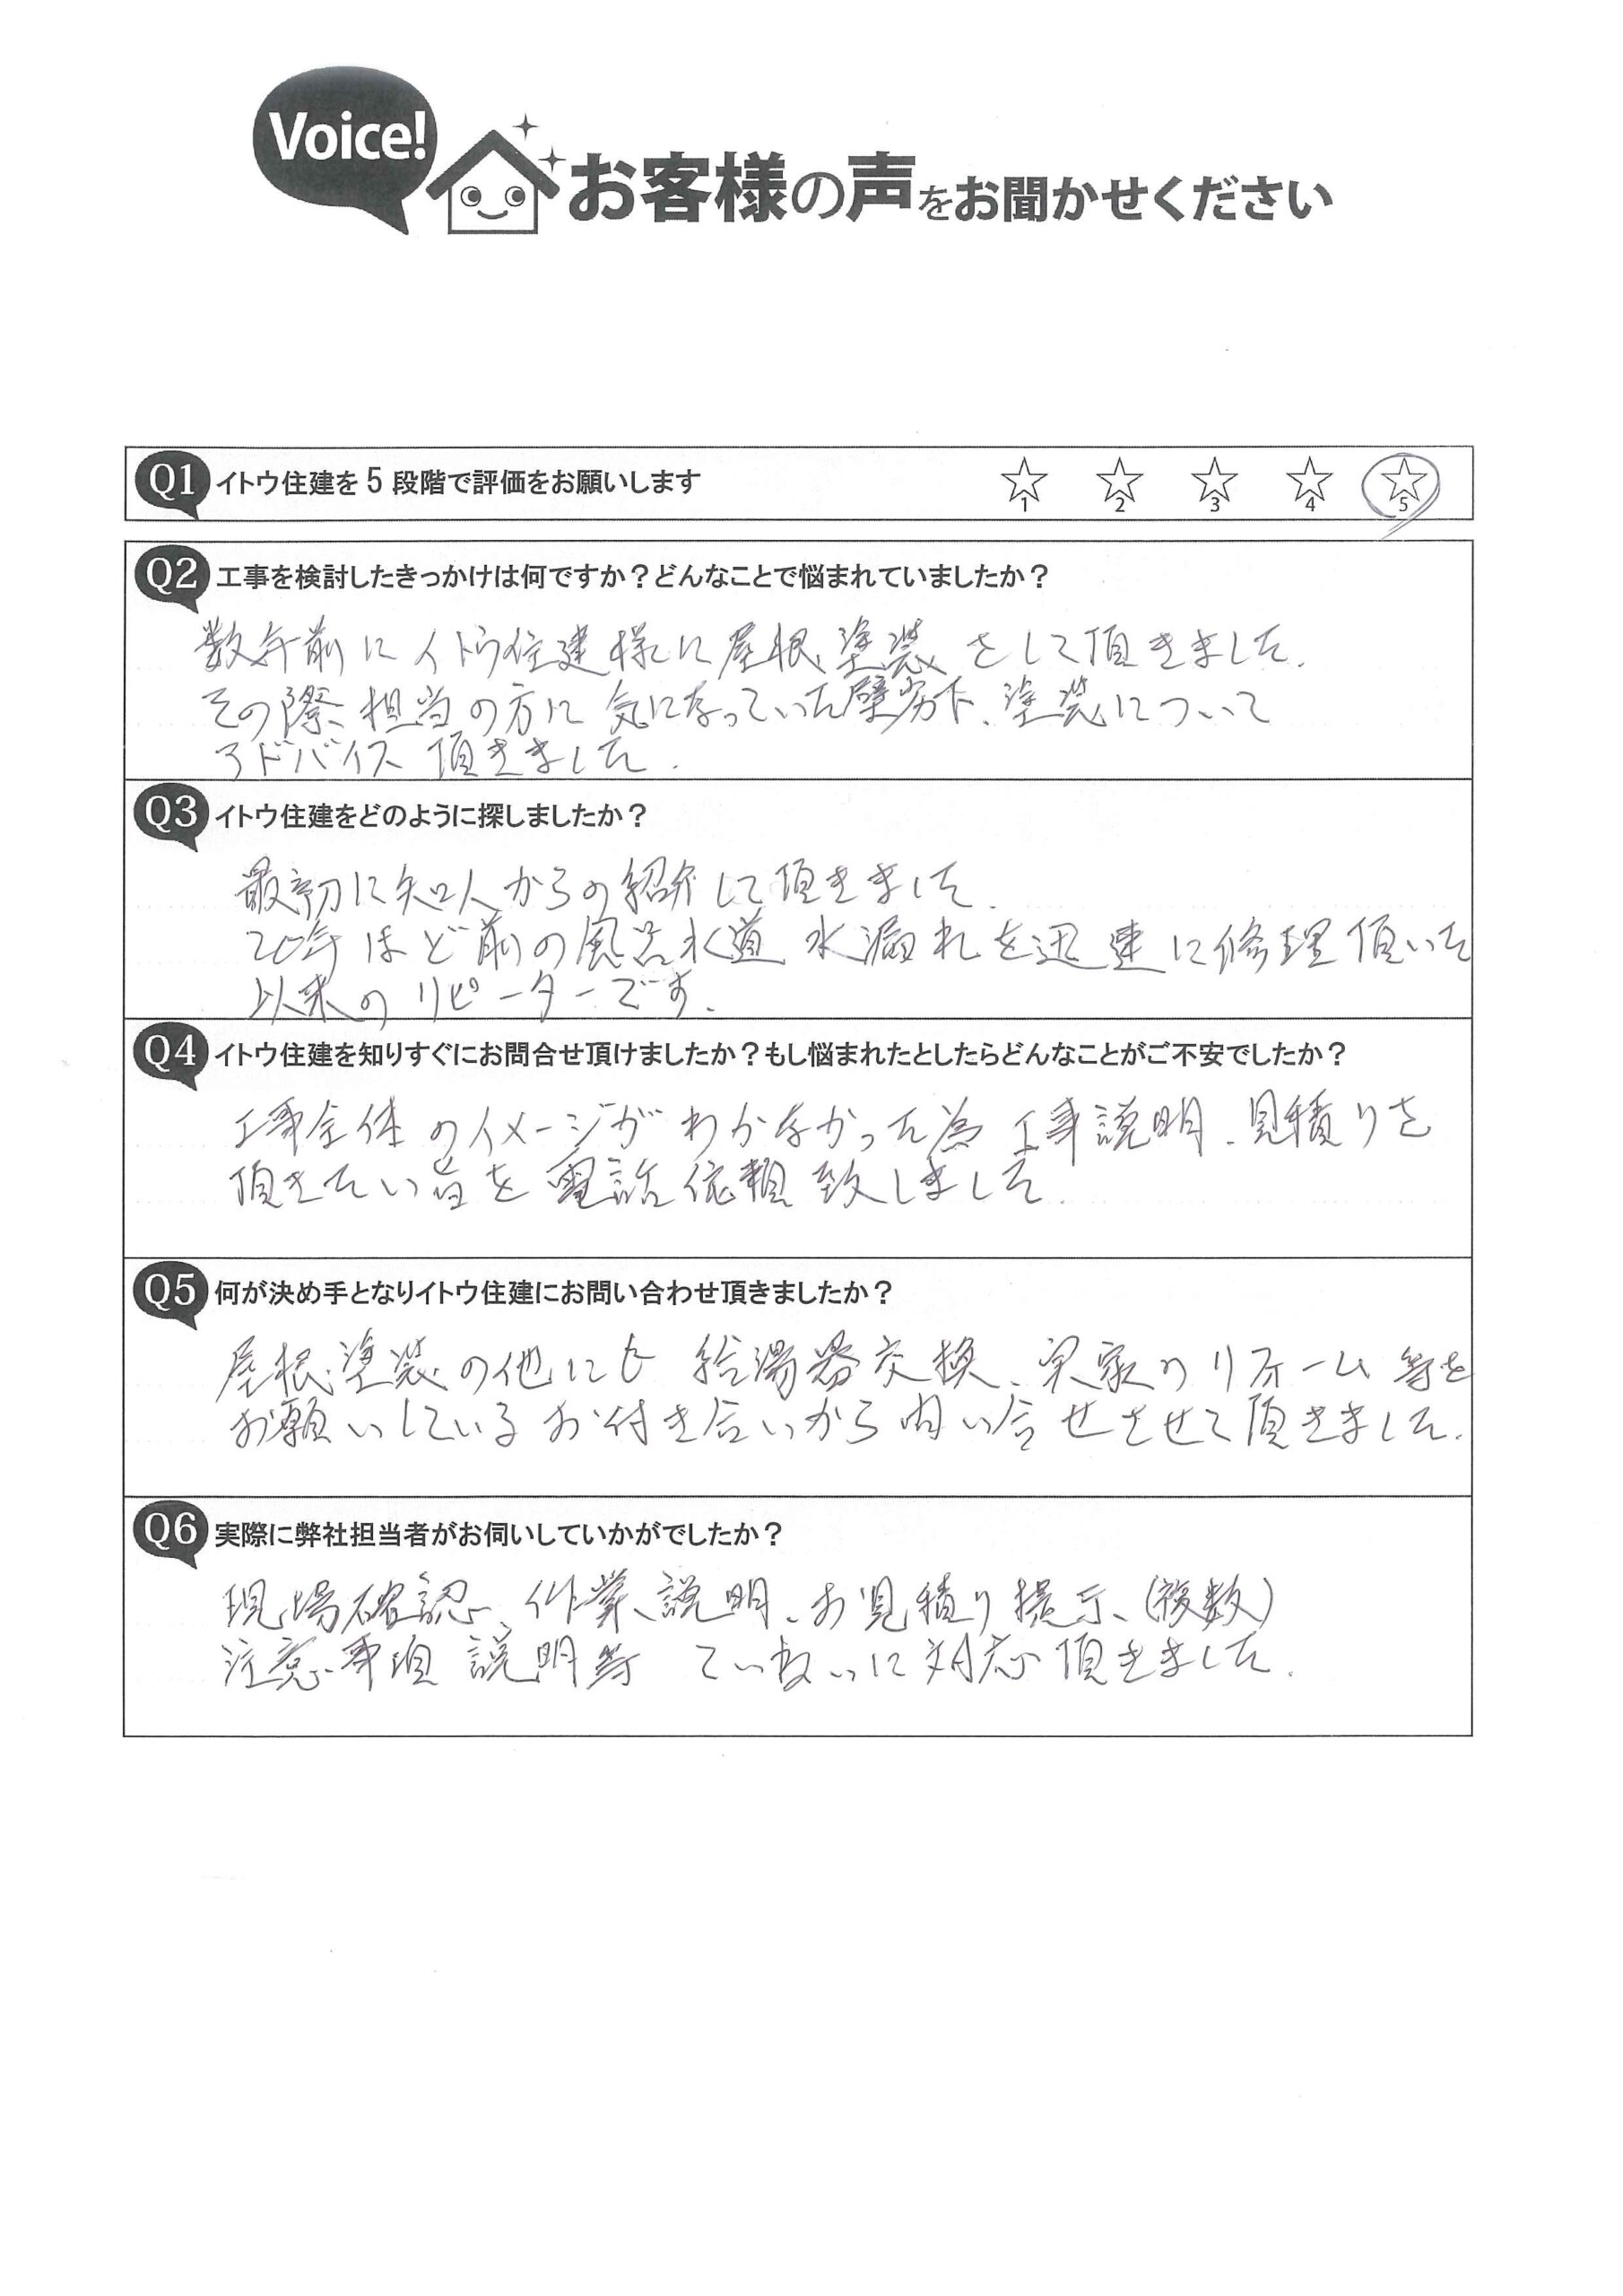 Voice!
お客様の声をお聞かせください
Q1 イトウ住建を5段階で評価をお願いします ☆1 ☆2 ☆3 ☆4 ☆5
Q2 工事を検討したきっかけは何ですか？どんなことで悩まれていましたか？
数年前にイトウ住建様に屋根塗装をして頂きました.
その際担当の方に気になっていた壁劣下、塗装について
アドバイス頂きました.
Q3 イトウ住建をどのように探しましたか？
最初に知人からの紹介して頂きました.
20年ほど前の風呂水道水漏れを迅速に修理頂いた
以来のリピーターです.
Q4 イトウ住建を知りすぐにお問合せ頂けましたか？もし悩まれたとしたらどんなことがご不安でしたか？
工事全体のイメージがわかなかった為工事説明、見積りを
頂きたい旨を電話依頼致しました.
Q5 何が決め手となりイトウ住建にお問い合わせ頂きましたか？
屋根塗装の他にも給湯器交換、実家のリフォーム等を
お願いしているお付き合いから問い合せさせて頂きました.
Q6 実際に弊社担当者がお伺いしていかがでしたか？
現場確認、作業説明、お見積り提示、(複数)
注意事項説明等 ていねいに対応頂きました.